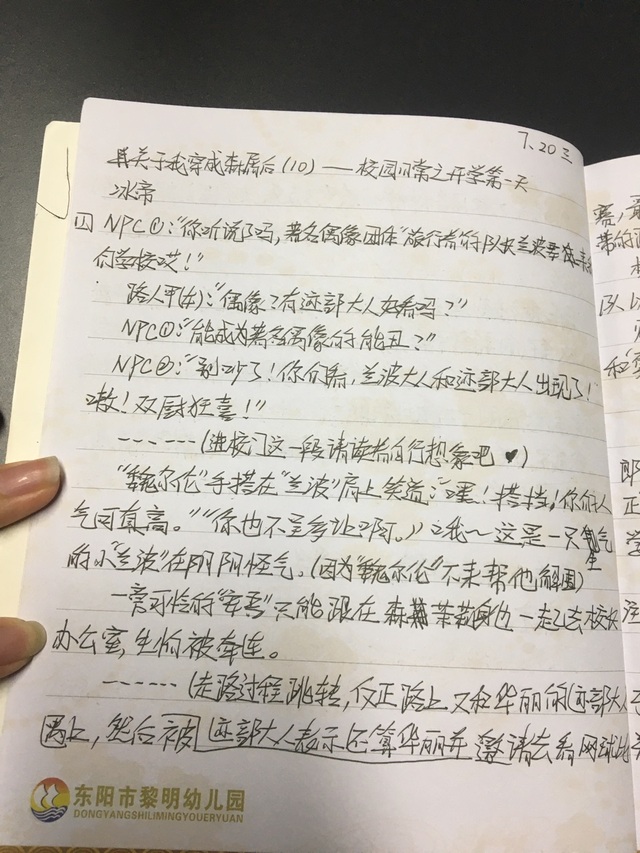 7、20 三
关于我穿成森鸥后(10)——校园日常之开学第一天
冰帝
四 NPC①:“你听说了吗,著名偶像团体“旅行者”的队长兰波要来
们学校哎!”
路人甲(女):“偶像?有迹部大人好看吗?”
NPC①:“能成为著名偶像的能丑?”
NPC②:“别吵了!你们看,兰波大人和迹部大人出现了!
嗷!双厨狂喜!”
------(进校门这一段请读者自行想象吧♥)
“魏尔伦”手搭在“兰波”肩上笑道:“嘿!搭挡!你的人
气可真高。”“你也不至多让啊。”
的小“兰波”在阴阳怪气。(因为“魏尔伦”不来帮他解围)
一旁可怜的“宰吾”只能跟在森茉莉身边一起去校长
办公室,生怕被牵连。
------(走路过程跳转,反正路上又和华丽的迹部大人
遇上,然后被迹部大人表示还算华丽并邀请去看网球比
东阳市黎明幼儿园
DONGYANGSHILIMINGYOUERYUAN
赛,
带的
队
和